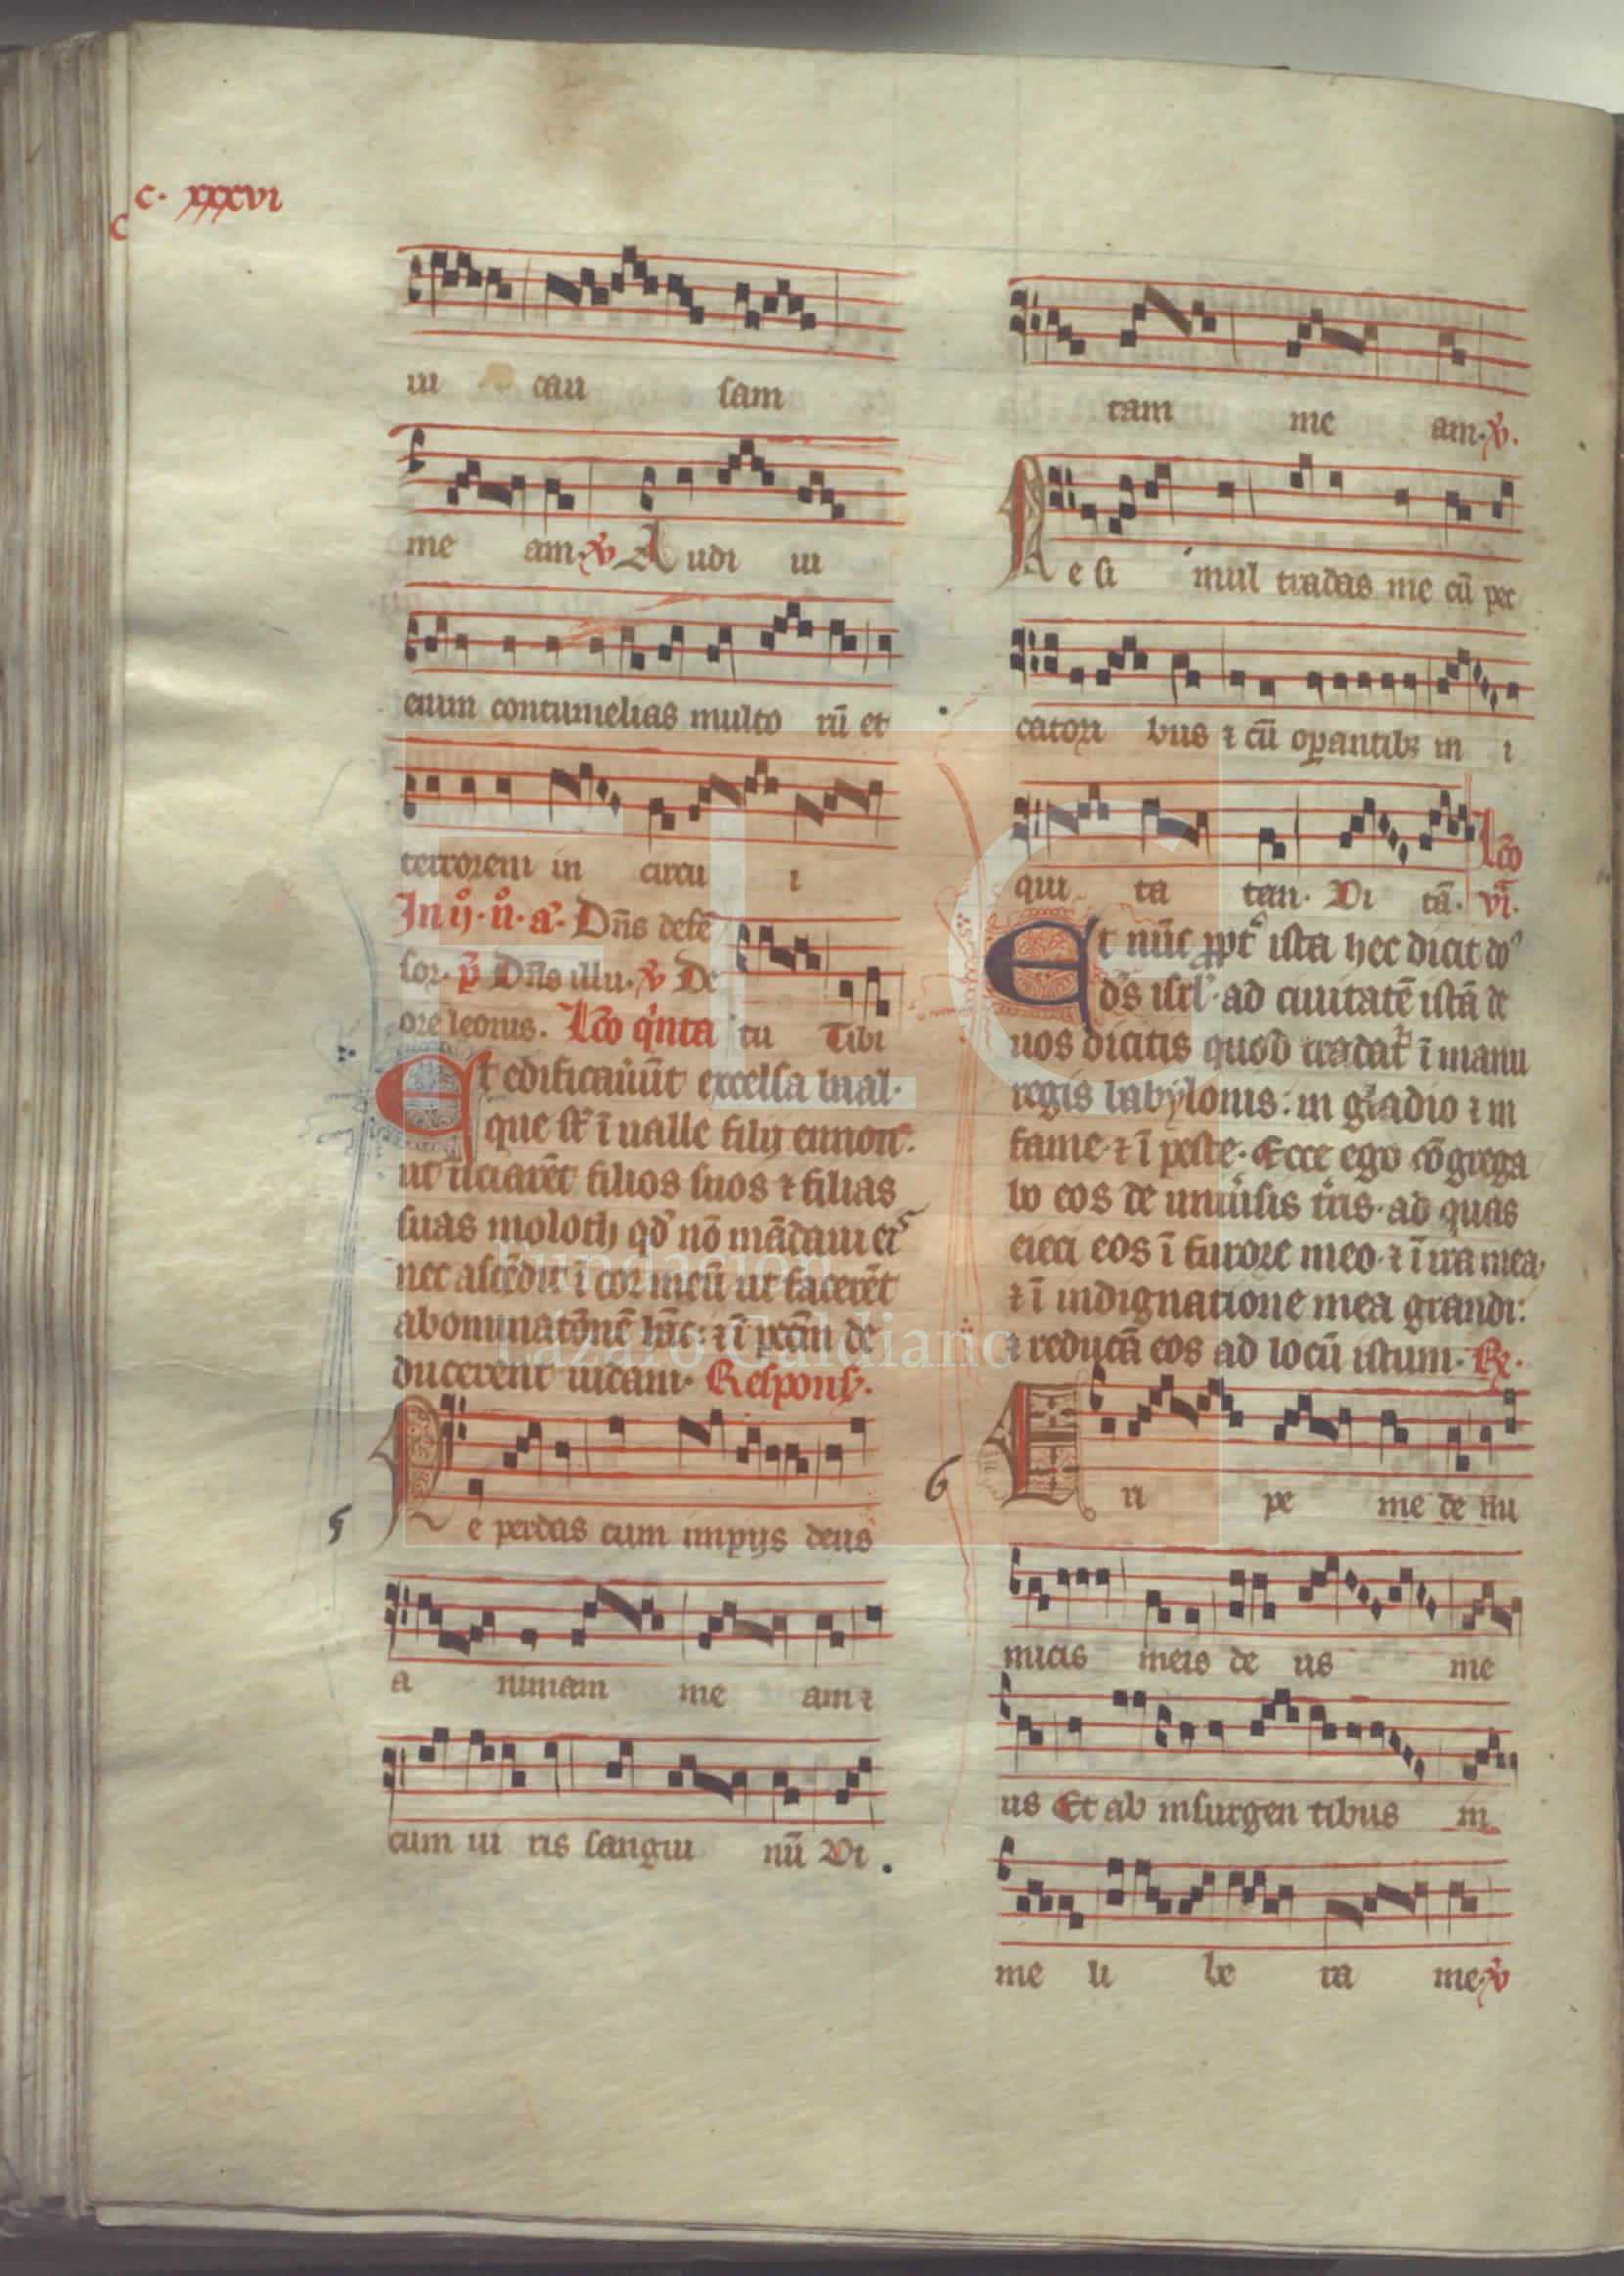 c. xxxvi
ui cau sam
me am. ℣ Audi ui
enim contumelias multo rū et
terrorem in circu i
In ij. n. a. Dn̄s defē
sor. p̄ Dn̄s illu. ℣ De
ore leonis. Lc̄o q'nta tu Tibi
Et edificauūt excelsa baal.
que st̄ ī ualle filij ennon.
ut īiciarēt filios suos ⁊ filias
suas moloch qd̄ nō mādaui eis
nec ascēdit ī cor meū ut facerēt
abominatōnē hāc: ⁊ ī pctm̄ de
ducerent iudam. Respons.
5
Ne perdas cum impijs deus
a nimam me am ⁊
cum ui ris sangui nū Vi
tam me am. ℣.
Ne si mul tradas me cū pec
catori bus ⁊ cū oꝑantibꝫ in i
qui ta tem. Vi tā. Lc̄o
vī.
Et nūc ꝓpt' ista hec dicit dn̄s
ds̄ isrl'. ad ciuitatē istā de
uos dicitis quod tradat' ī manu
regis babylonis: in gladio ⁊ in
fame. ⁊ ī peste. Ecce ego cōgrega
bo eos de uniu'sis t'ris. ad quas
eieci eos ī furore meo. ⁊ ī ira mea.
⁊ ī indignatione mea grandi:
⁊ reducā eos ad locū istum. ℟.
6
Eri pe me de ini
micis meis de us me
us Et ab insurgen tibus in
me li be ra me. ℣
FLG
Fundación
Lázaro Galdiano